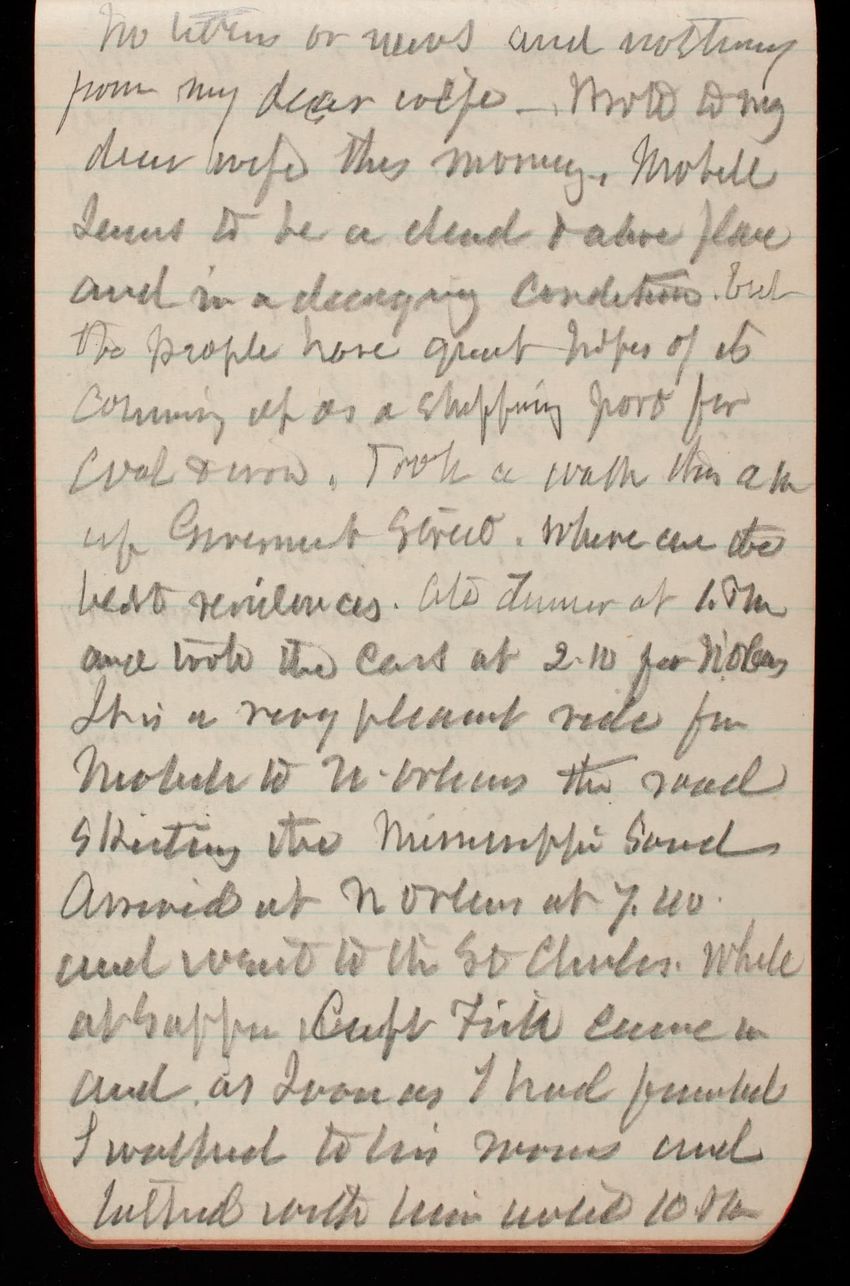 No letters or news and nothing
from my dear wife _ Wrote to my
dear wife this morning. Mobile
Seems to be a dead & alive place
and in a decaying condition. but
the people have great hopes of its
coming up as a shipping port for
Coal & iron. Took a walk this am
up Government Street. Where are the
best residences. Ate dinner at 1. Pm
and took the cars at 2.10 for N Orleans
It is a very pleasant ride from
Mobile to N. Orleans the road
Skirting the Mississippi Sound
Arrived at N Orleans at 7.40.
and went to the St Charles. While
at Supper Capt Fisk came in
and as Soon as I had finished
I walked to his rooms and
talked with him until 10 Pm